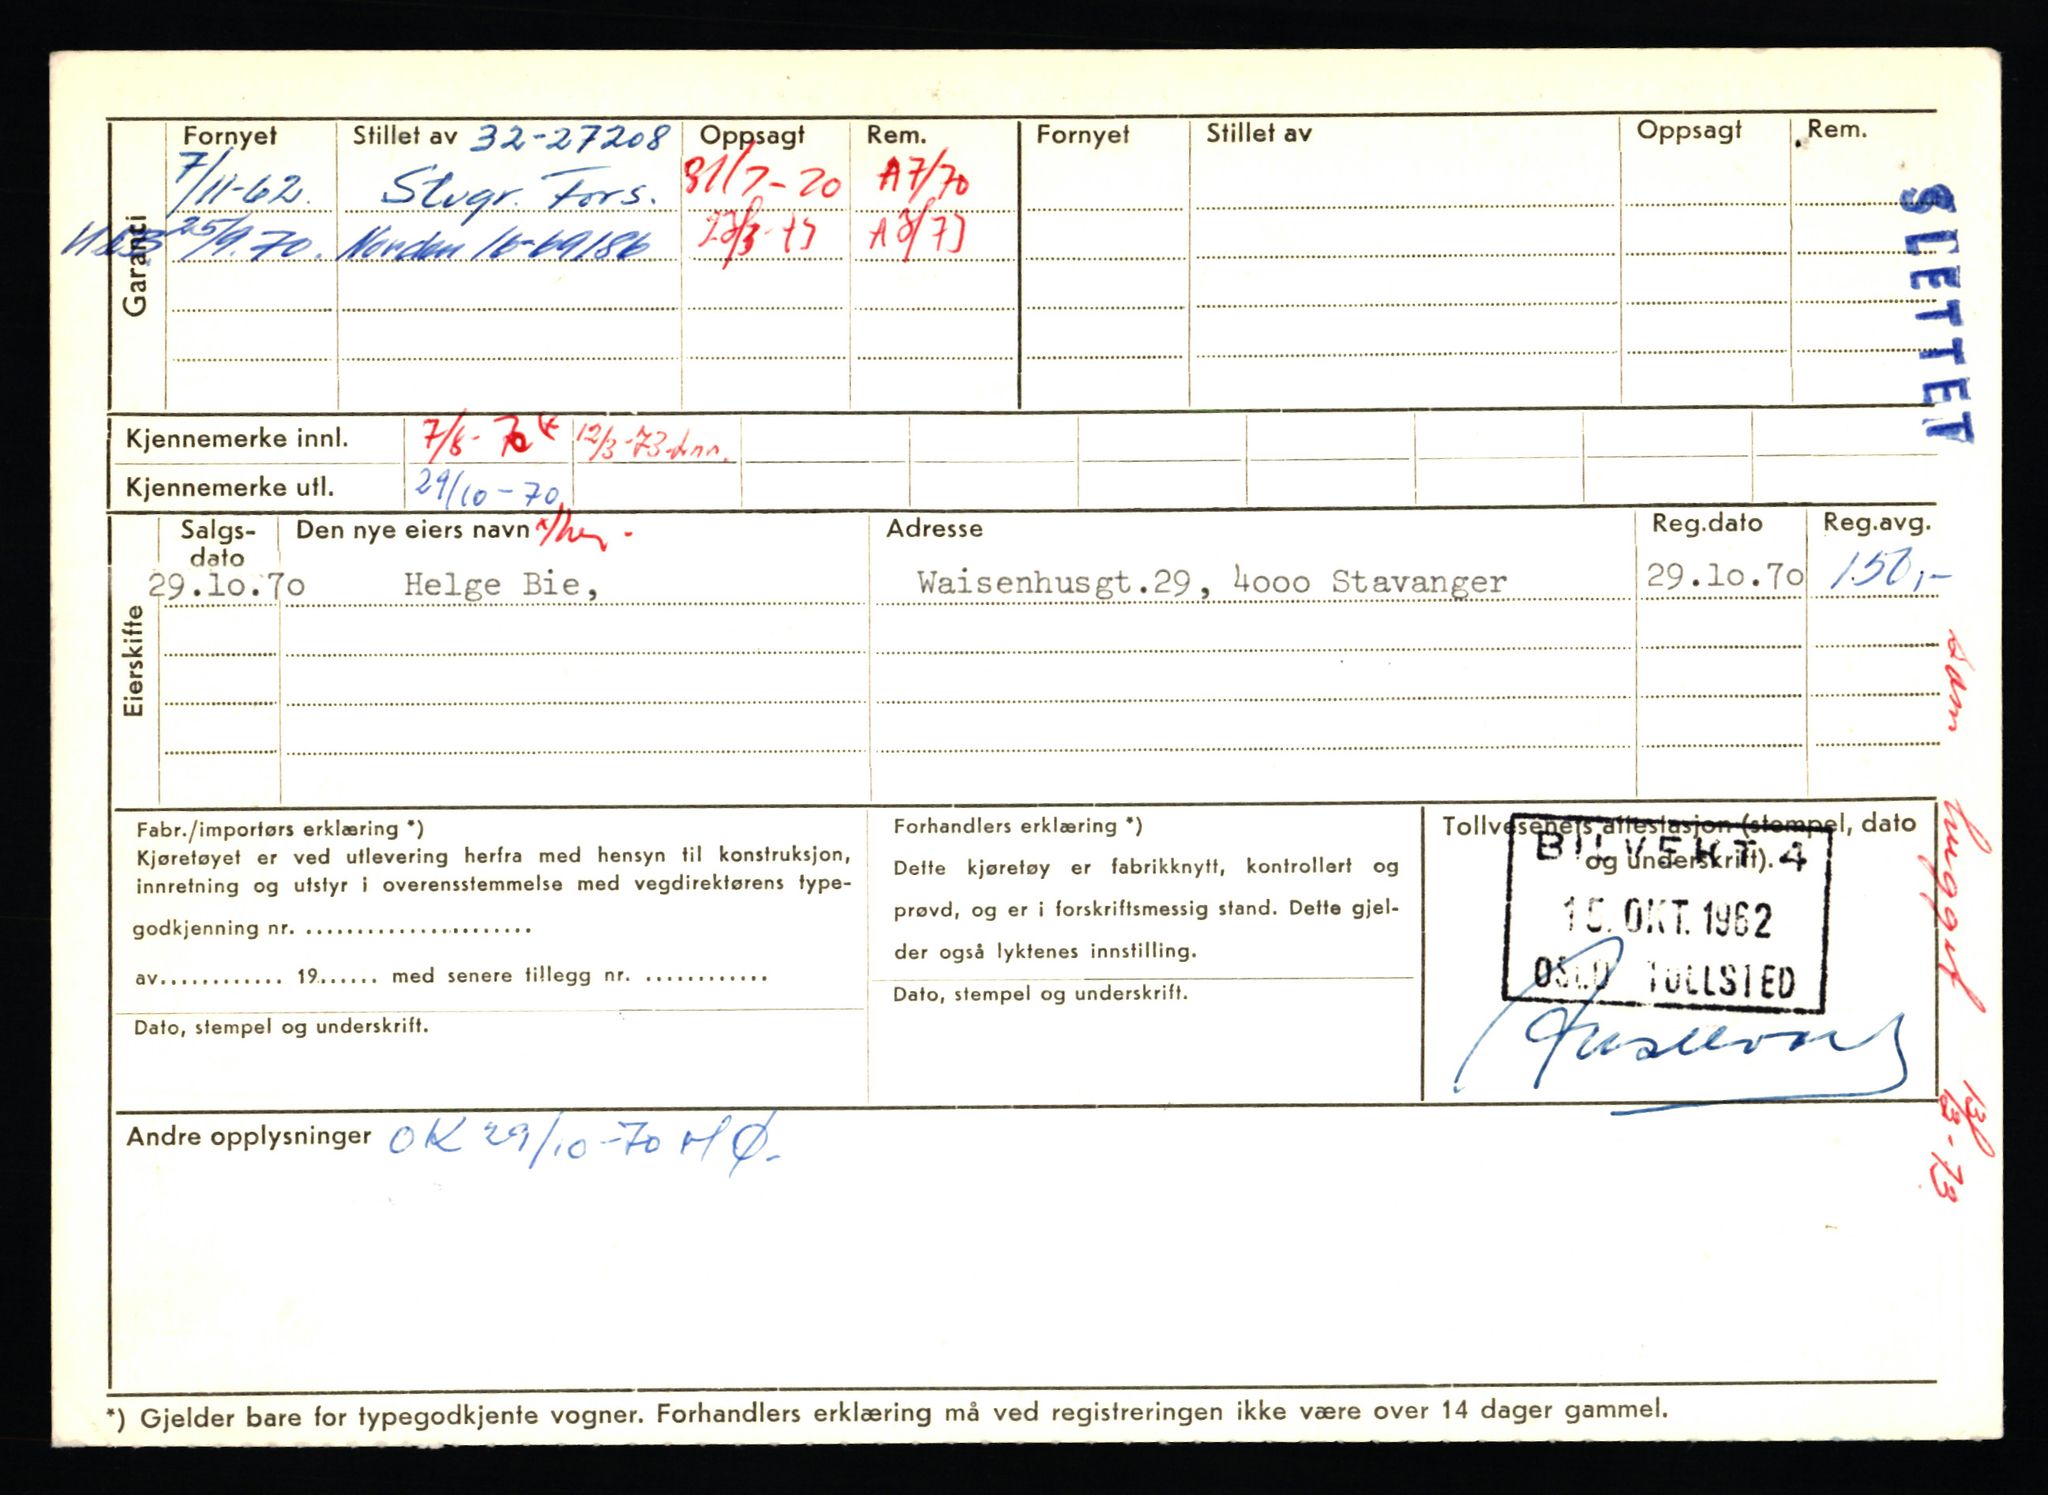 Garanti
Fornyet Stillet av 32-27208 Oppsagt Rem. Fornyet Stillet av Oppsagt Rem.
7/11-62. Stvgr. Fors. 31/7-70 A7/70
25/9.70. Norden 16-69186
SLETTET
Kjennemerke innl. 12/3-73
Kjennemerke utl. 29/10-70
Eierskifte
Salgs-dato Den nye eiers navn Adresse Reg.dato Reg.avg.
29.10.70 Helge Bie, Waisenhusgt.29, 4000 Stavanger 29.10.70 150,-
Som hugget 13/3-73
Fabr./importørs erklæring *)
Kjøretøyet er ved utlevering herfra med hensyn til konstruksjon,
innretning og utstyr i overensstemmelse med vegdirektørens type-
godkjenning nr. ......................
av............ 19...... med senere tillegg nr. ............
Dato, stempel og underskrift.
Forhandlers erklæring *)
Dette kjøretøy er fabrikknytt, kontrollert og
prøvd, og er i forskriftsmessig stand. Dette gjel-
der også lyktenes innstilling.
Dato, stempel og underskrift.
Tollvesenets attestasjon (stempel, dato
og underskrift).
BILVEKT 4
15. OKT. 1962
OSLO TOLLSTED
Andre opplysninger OK 29/10-70 HØ.
*) Gjelder bare for typegodkjente vogner. Forhandlers erklæring må ved registreringen ikke være over 14 dager gammel.